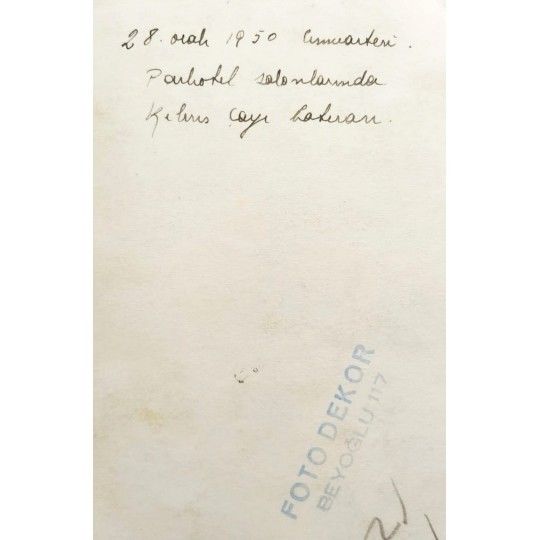 28. ocak 1950 Cumartesi.
Parkotel salonlarında
Kıbrıs Çayı hatırası.
FOTO DEKOR
BEYOĞLU 117